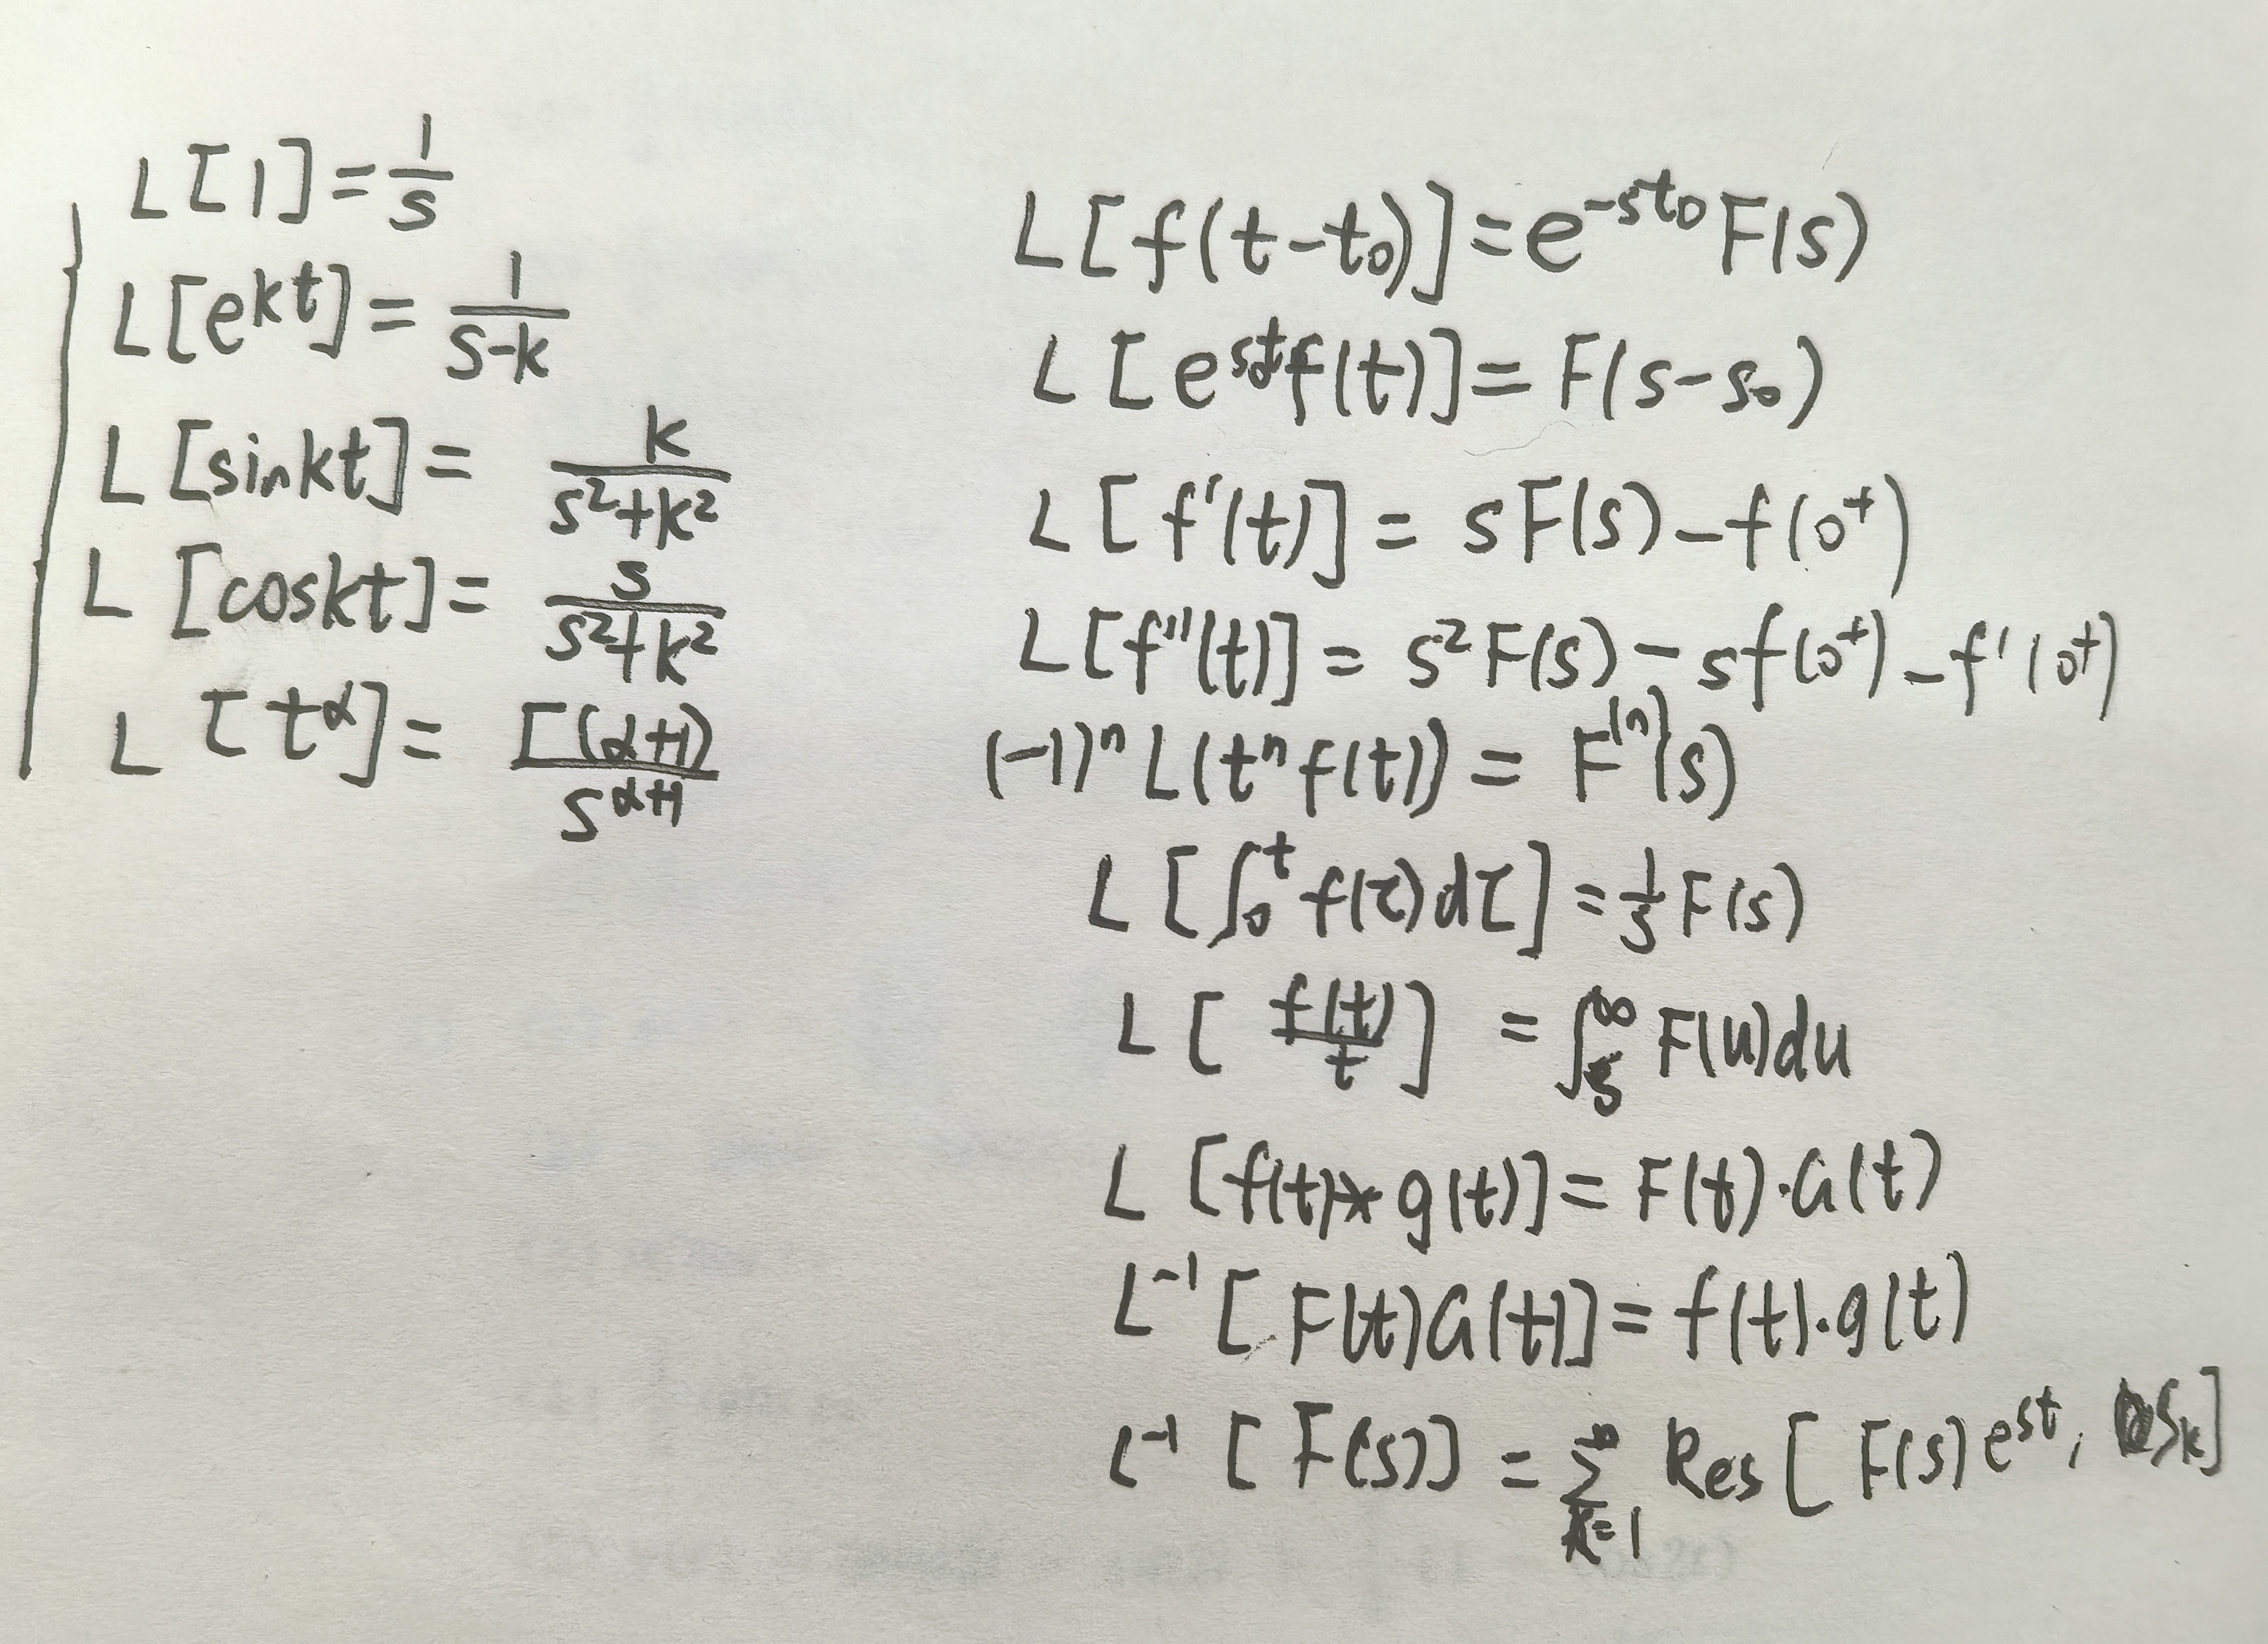 L[1]=1/s
L[e^{kt}]=1/(s-k)
L[sinkt]=k/(s²+k²)
L[coskt]=s/(s²+k²)
L[t^α]=Γ(α+1)/s^{α+1}
L[f(t-t₀)]=e^{-st₀}F(s)
L[e^{s₀t}f(t)]=F(s-s₀)
L[f'(t)]=sF(s)-f(0⁺)
L[f''(t)]=s²F(s)-sf(0⁺)-f'(0⁺)
(-1)ⁿL(tⁿf(t))=F^{(n)}(s)
L[∫₀^t f(τ)dτ]=1/s F(s)
L[f(t)/t]=∫_s^∞ F(u)du
L[f(t)*g(t)]=F(t)·G(t)
L⁻¹[F(t)G(t)]=f(t)·g(t)
L⁻¹[F(s)]=∑_{k=1} Res[F(s)e^{st}, s_k]